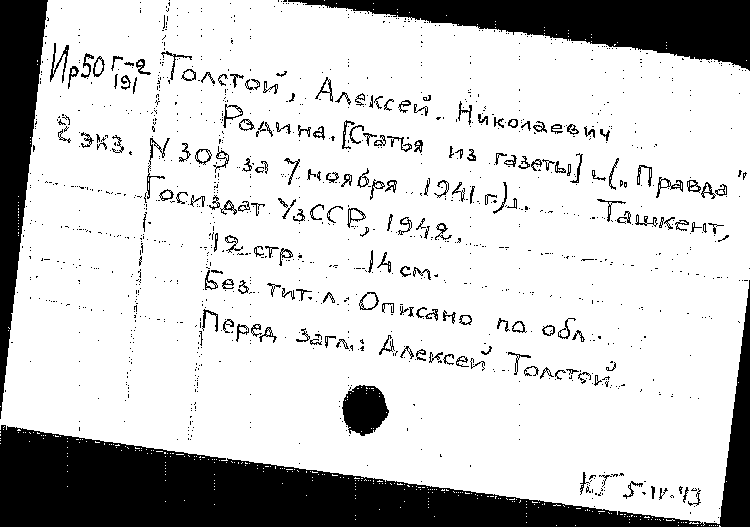 Ир50 Г-2
191
Толстой, Алексей. Николаевич
Родина. [Статья из газеты] („Правда"
2 экз.
N 309 за 7 ноября 1941 г.). Ташкент,
Госиздат УзССР, 1942.
12 стр. 14 см.
Без тит. л. Описано по обл.
Перед загл.: Алексей Толстой
КГ 5.IV.43